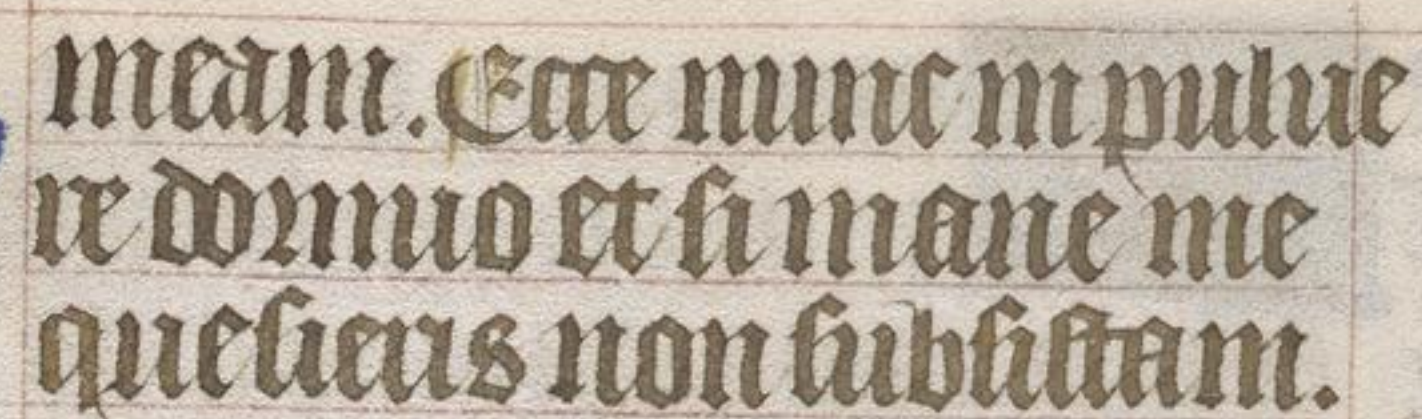 meam. Ecce nunc in pulue
re dormio et si mane me
quesieris non subsistam.